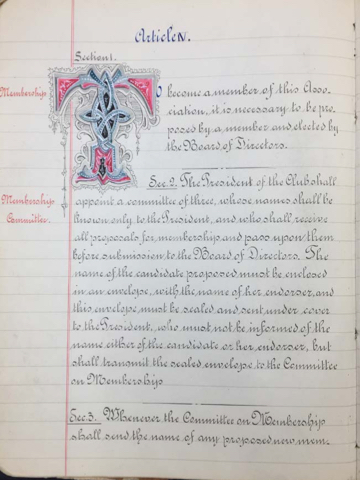 Article IV.
Section 1.
Membership
To become a member of this Asso-
ciation, it is necessary to be pro-
posed by a member and elected by
the Board of Directors.
Membership
Committee.
Sec. 2. The President of the Club shall
appoint a committee of three, whose names shall be
known only to the President, and who shall receive
all proposals for membership and pass upon them
before submission to the Board of Directors. The
name of the candidate proposed must be enclosed
in an envelope, with the name of her endorser, and
this envelope must be sealed and sent under cover
to the President, who must not be informed of the
name either of the candidate or her endorser, but
shall transmit the sealed envelope to the Committee
on Membership
Sec. 3. Whenever the Committee on Membership
shall send the name of any proposed new mem-